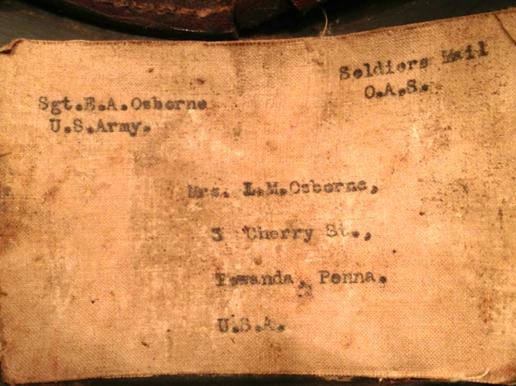 Soldiers Mail
O.A.S.
Sgt.E.A.Osborne
U.S.Army.
Mrs. L.M.Osborne,
3 Cherry St.,
Towanda, Penna.
U.S.A.